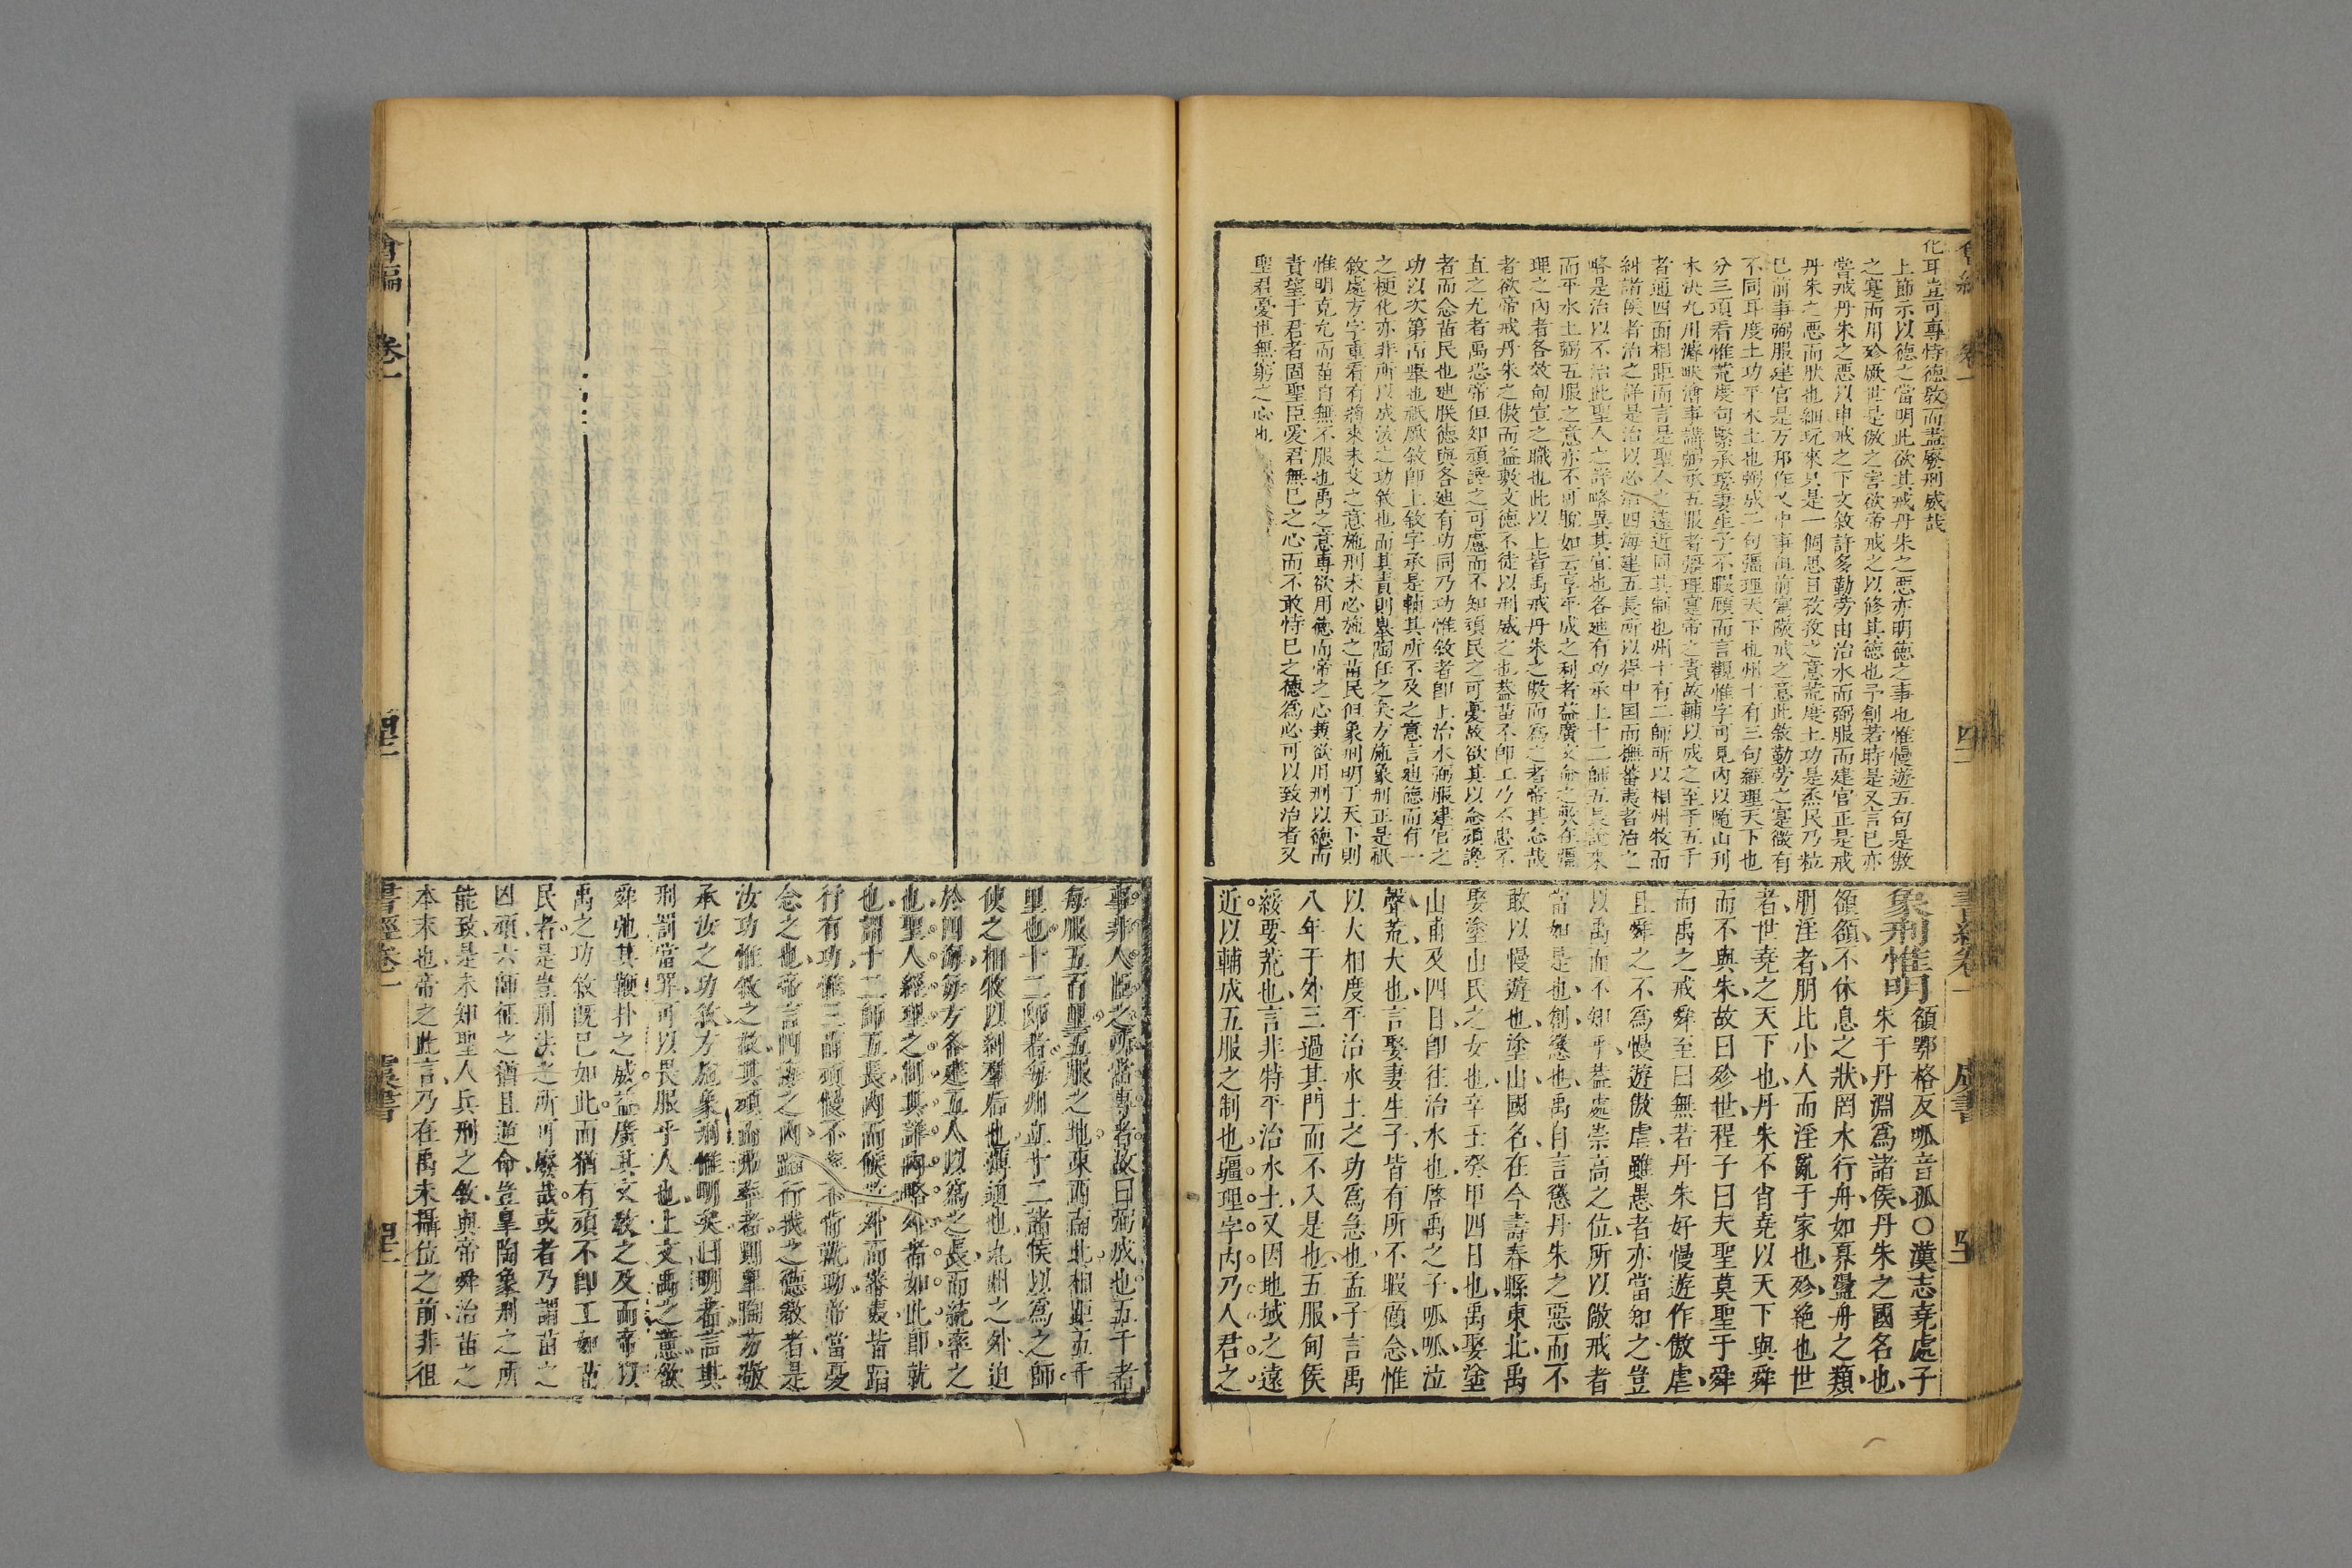 會編 卷一 四二
化耳豈可專恃德敎而盡廢刑威哉
上節示以德之當明此欲其戒丹朱之惡亦明德之事也惟慢遊五句是傲
之寔而用殄厥世是傲之害欲帝戒之以修其德也予創若時是又言已亦
嘗戒丹朱之惡以申戒之下文敘許多勤勞由治水而弼服而建官正是戒
丹朱之惡而狀也細玩來只是一個思日孜孜之意荒度土功是烝民乃粒
已前事弼服建官是万邦作乂中事與前寓陳戒之意此敘勤勞之寔微有
不同耳度土功平水土也弼成二句疆理天下也州十有三句經理天下也
分三項看惟荒度句緊承娶妻生子不暇顧而言觀惟字可見內以随山刋
木決九川濬畎澮事講弼承五服者疆理寔帝之責故輔以成之至于五千
者通四面相距而言是聖人之遠近同其制也州十有二師所以相州牧而
糾諸侯者治之詳是治以必治四海建五長所以将中国而撫蕃夷者治之
略是治以不治此聖人之詳略異其宜也各迪有功承上十二師五長說來
而平水土弼五服之意亦不可脫如云享平成之利者益廣文命之敷在疆
理之內者各效旬宣之職也此以上皆禹戒丹朱之傲而爲之者帝其念哉
者欲帝戒丹朱之傲而益敷文德不徒以刑威之也蓋苗不卽工乃不忠不
直之尤者禹恐帝但知頑讒之可慮而不知頑民之可憂故欲其以念頑讒
者而念苗民也迪朕德與各迪有功同乃功惟敘者卽上治水弼服建官之
功以次第而舉也祗厥敘卽上敘字承是輔其所不及之意言迪德而有一
之梗化亦非所以成汝之功敘也而其責則皋陶任之矣方施象刑正是祇
敘處方字重看有將來未艾之意施刑未必施之苗民但象刑明于天下則
惟明克允而苗自無不服也禹之意專欲用德而帝之心兼欲用刑以德而
責望于君者固聖臣爱君無已之心而不敢恃已之德爲必可以致治者又
聖君憂世無窮之心也
書經卷一 虞書 四二
象刑惟明 額鄂格反呱音孤○漢志堯處子
朱于丹淵爲諸侯丹朱之國名也
額額不休息之狀罔水行舟如奡盪舟之類
朋淫者朋比小人而淫亂于家也殄絶也世
者世堯之天下也丹朱不肖堯以天下與舜
而不與朱故曰殄世程子曰夫聖莫聖于舜
而禹之戒舜至曰無若丹朱好慢遊作傲虐
且舜之不爲慢遊傲虐雖愚者亦當知之豈
以禹而不知乎蓋處崇高之位所以儆戒者
當如是也創懲也禹自言懲丹朱之惡而不
敢以慢遊也塗山國名在今壽春縣東北禹
娶塗山氏之女也辛壬癸甲四日也禹娶塗
山甫及四日卽往治水也啓禹之子呱呱泣
聲荒大也言娶妻生子皆有所不暇顧念惟
以大相度平治水土之功爲急也孟子言禹
八年于外三過其門而不入是也五服甸侯
綏要荒也言非特平治水土又因地域之遠
近以輔成五服之制也疆理宇內乃人君之
事非人臣之所當專者故曰弼成也五千者
每服五百里五服之地東西南北相距五千
里也十二師者每州立十二諸侯以爲之師
使之相牧以糾羣后也薄迫也九州之外迫
於四海每方各建五人以爲之長而統率之
也聖人經理之制其詳內略外者如此卽就
也謂十二師五長內而侯牧外而蕃夷皆蹈
行有功惟三苗頑慢不率不肯就功帝當憂
念之也帝言四海之內蹈行我之德敎者是
汝功惟敘之故其頑而弗率者則皐陶方敬
承汝之功敘方施象刑惟明矣曰明者言其
刑罰當罪可以畏服乎人也上文禹之意欲
舜弛其鞭扑之威益廣其文敎之及而帝以
禹之功敘旣已如此而猶有頑不卽工如苗
民者是豈刑法之所可廢哉或者乃謂苗之
凶頑六師征之猶且逆命豈皐陶象刑之所
能致是未知聖人兵刑之敘與帝舜治苗之
本末也帝之此言乃在禹未攝位之前非徂
會編 卷一 四二
書經卷一 虞書 四二